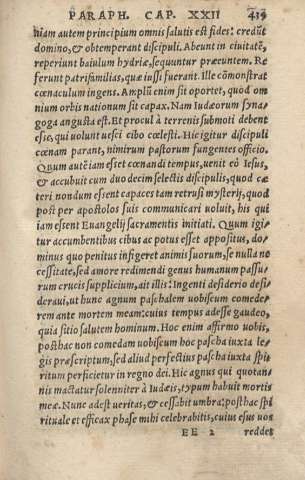 PARAPH. CAP. XXII 419
niam autem principium omnis salutis est fides: credūt
domino, & obtemperant discipuli. Abeunt in ciuitatē,
reperiunt baiulum hydriæ, sequuntur præeuntem. Re
ferunt patrifamilias, quæ iussi fuerant. Ille cōmonstrat
cœnaculum ingens. Amplū enim sit oportet, quod om
nium orbis nationum sit capax. Nam Iudæorum syna-
goga angusta est. Et procul à terrenis submoti debent
esse, qui uolunt uesci cibo cœlesti. Hic igitur discipuli
cœnam parant, nimirum pastorum fungentes officio.
Quum autē iam esset cœnandi tempus, uenit eò Iesus,
& accubuit cum duodecim selectis discipulis, quod cæ
teri nondum essent capaces tam retrusi mysterij, quod
post per apostolos suis communicari uoluit, his qui
iam essent Euangelij sacramentis initiati. Quum igi-
tur accumbentibus cibus ac potus esset appositus, do-
minus quo penitus infigeret animis suorum, se nulla ne
cessitate, sed amore redimendi genus humanum passu-
rum crucis supplicium, ait illis: Ingenti desiderio desi-
deraui, ut hunc agnum paschalem uobiscum comede-
rem ante mortem meam: cuius tempus adesse gaudeo,
quia sitio salutem hominum. Hoc enim affirmo uobis,
posthac non comedam uobiscum hoc pascha iuxta le-
gis præscriptum, sed aliud perfectius pascha iuxta spi-
ritum perficietur in regno dei. Hic agnus qui quotan-
nis mactatur solenniter à Iudæis, typum habuit mortis
meæ. Nunc adest ueritas, & cessabit umbra: posthac spi
rituale et efficax phase mihi celebrabitis, cuius esus uos
EE 2 reddet